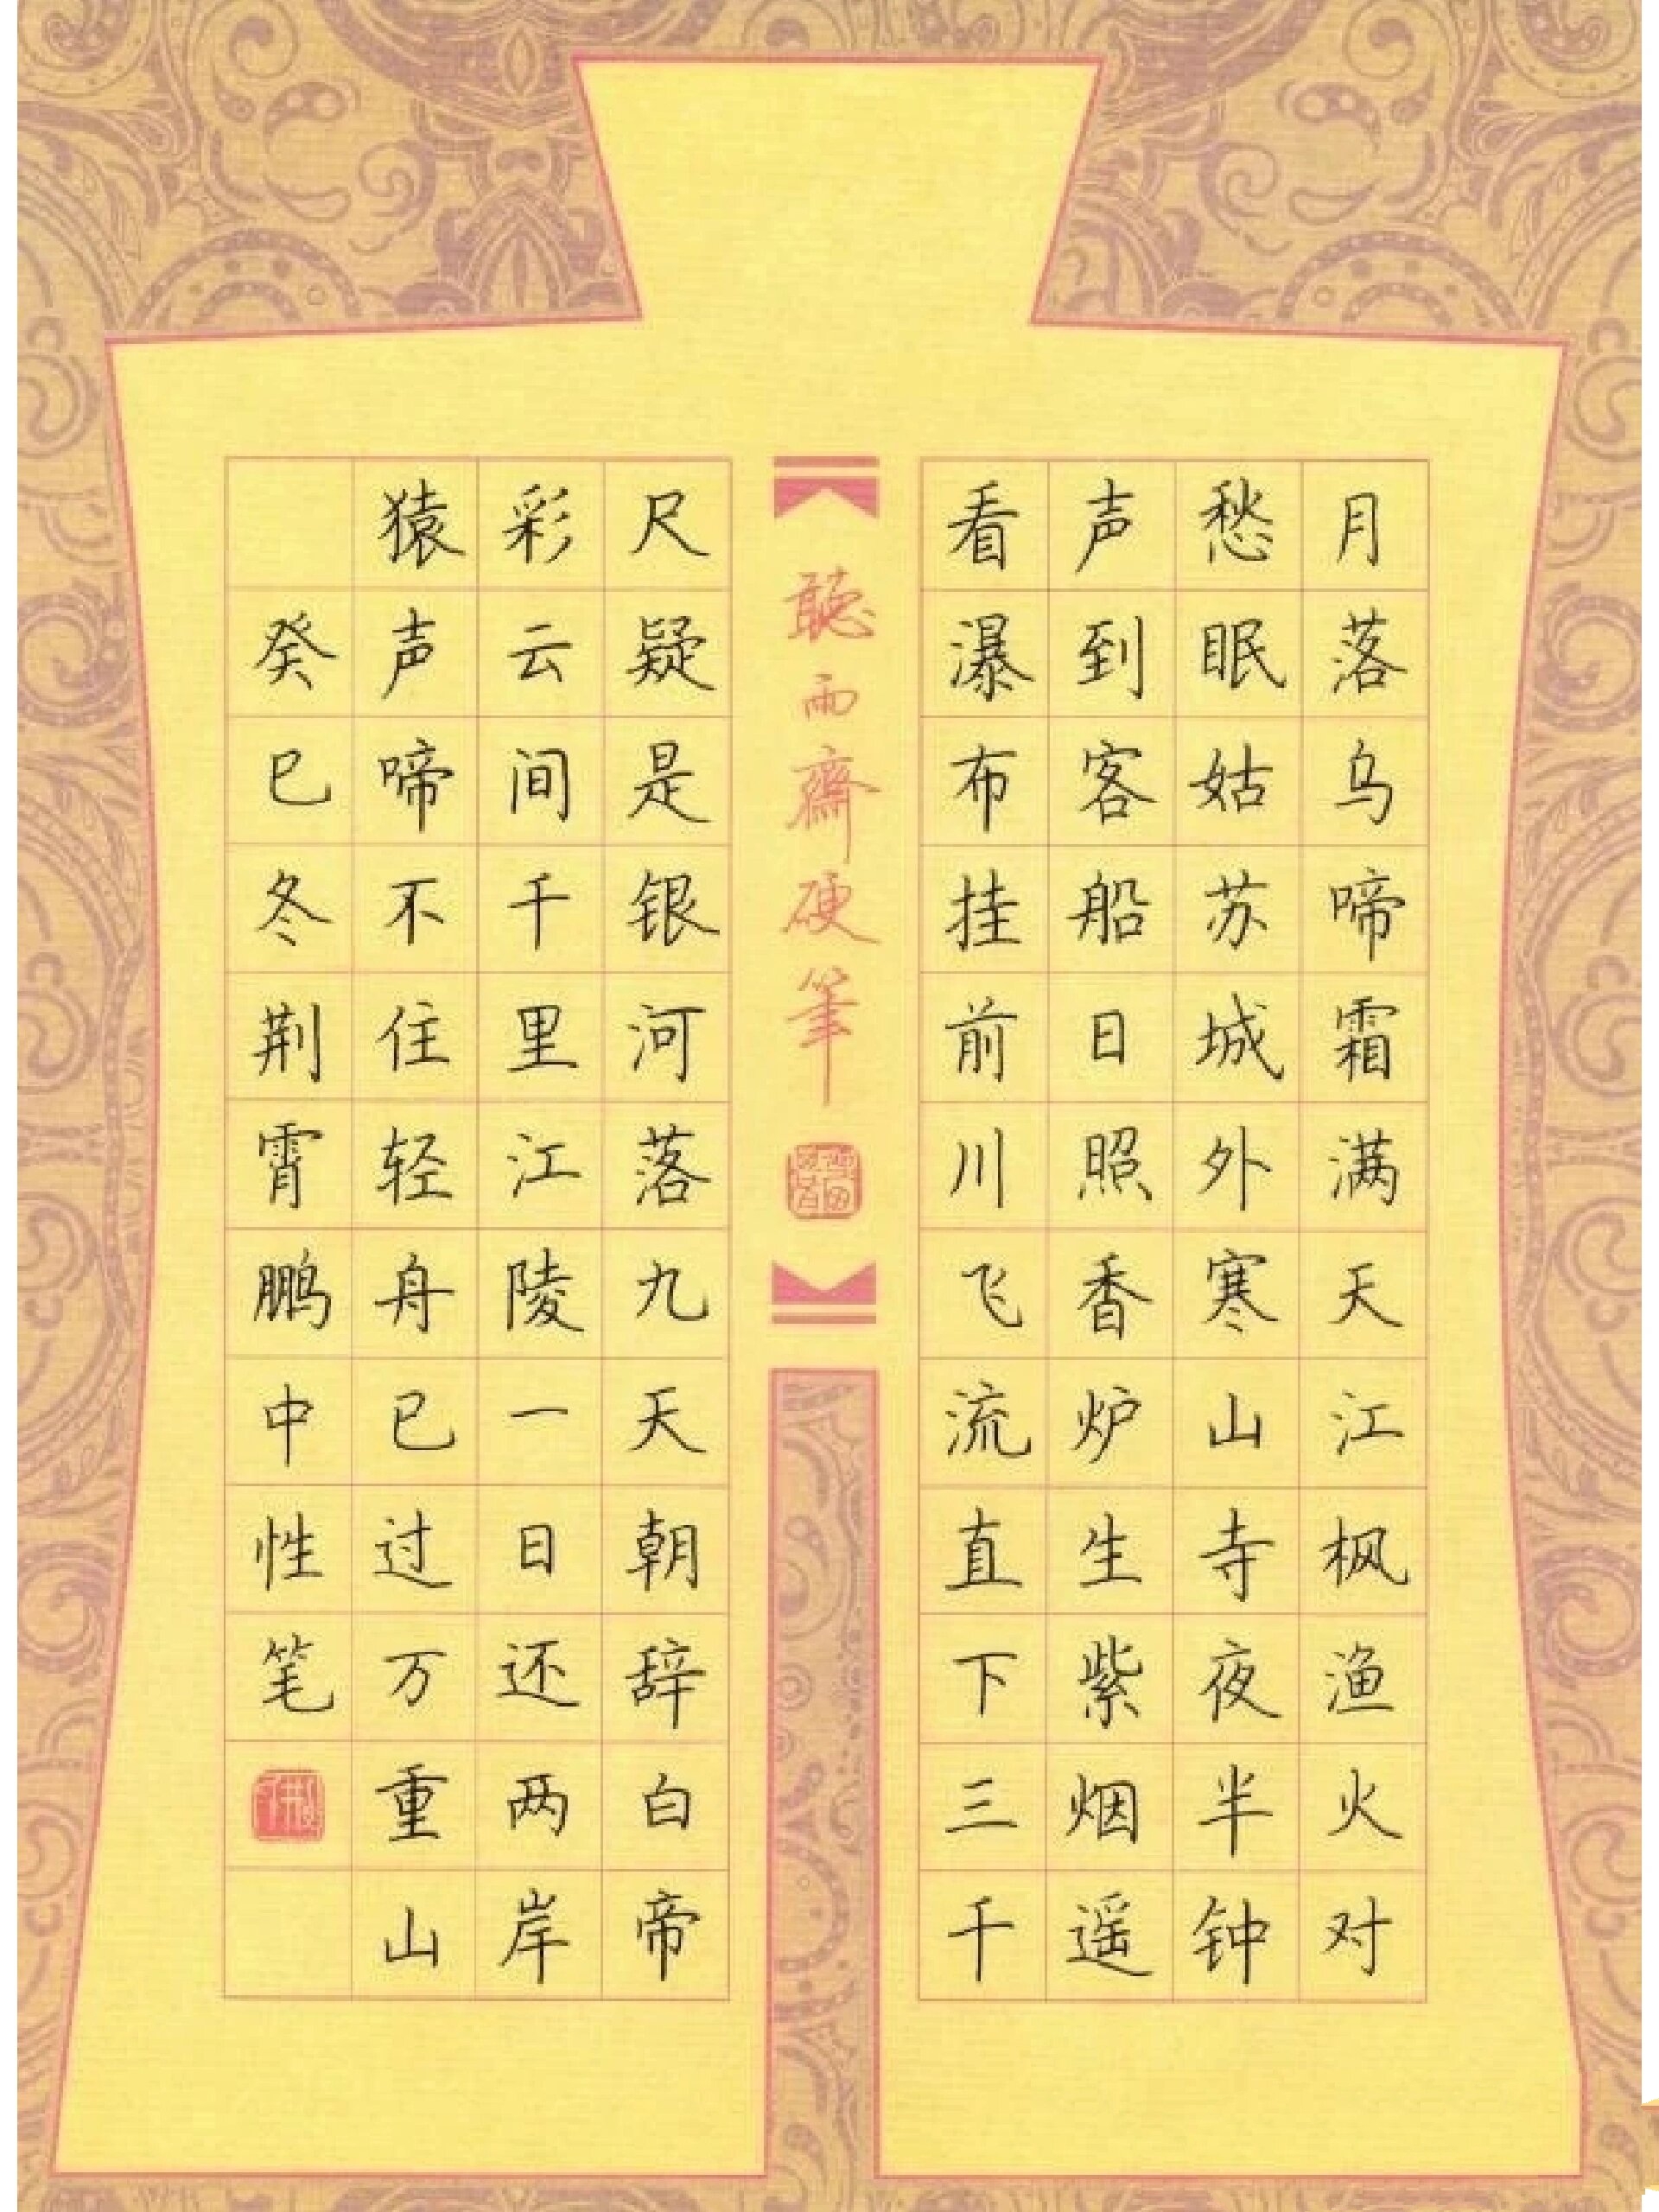 月落乌啼霜满天江枫渔火对
愁眠姑苏城外寒山寺夜半钟
声到客船日照香炉生紫烟遥
看瀑布挂前川飞流直下三千
聽雨齋硬筆
尺疑是银河落九天朝辞白帝
彩云间千里江陵一日还两岸
猿声啼不住轻舟已过万重山
癸巳冬荆霄鹏中性笔